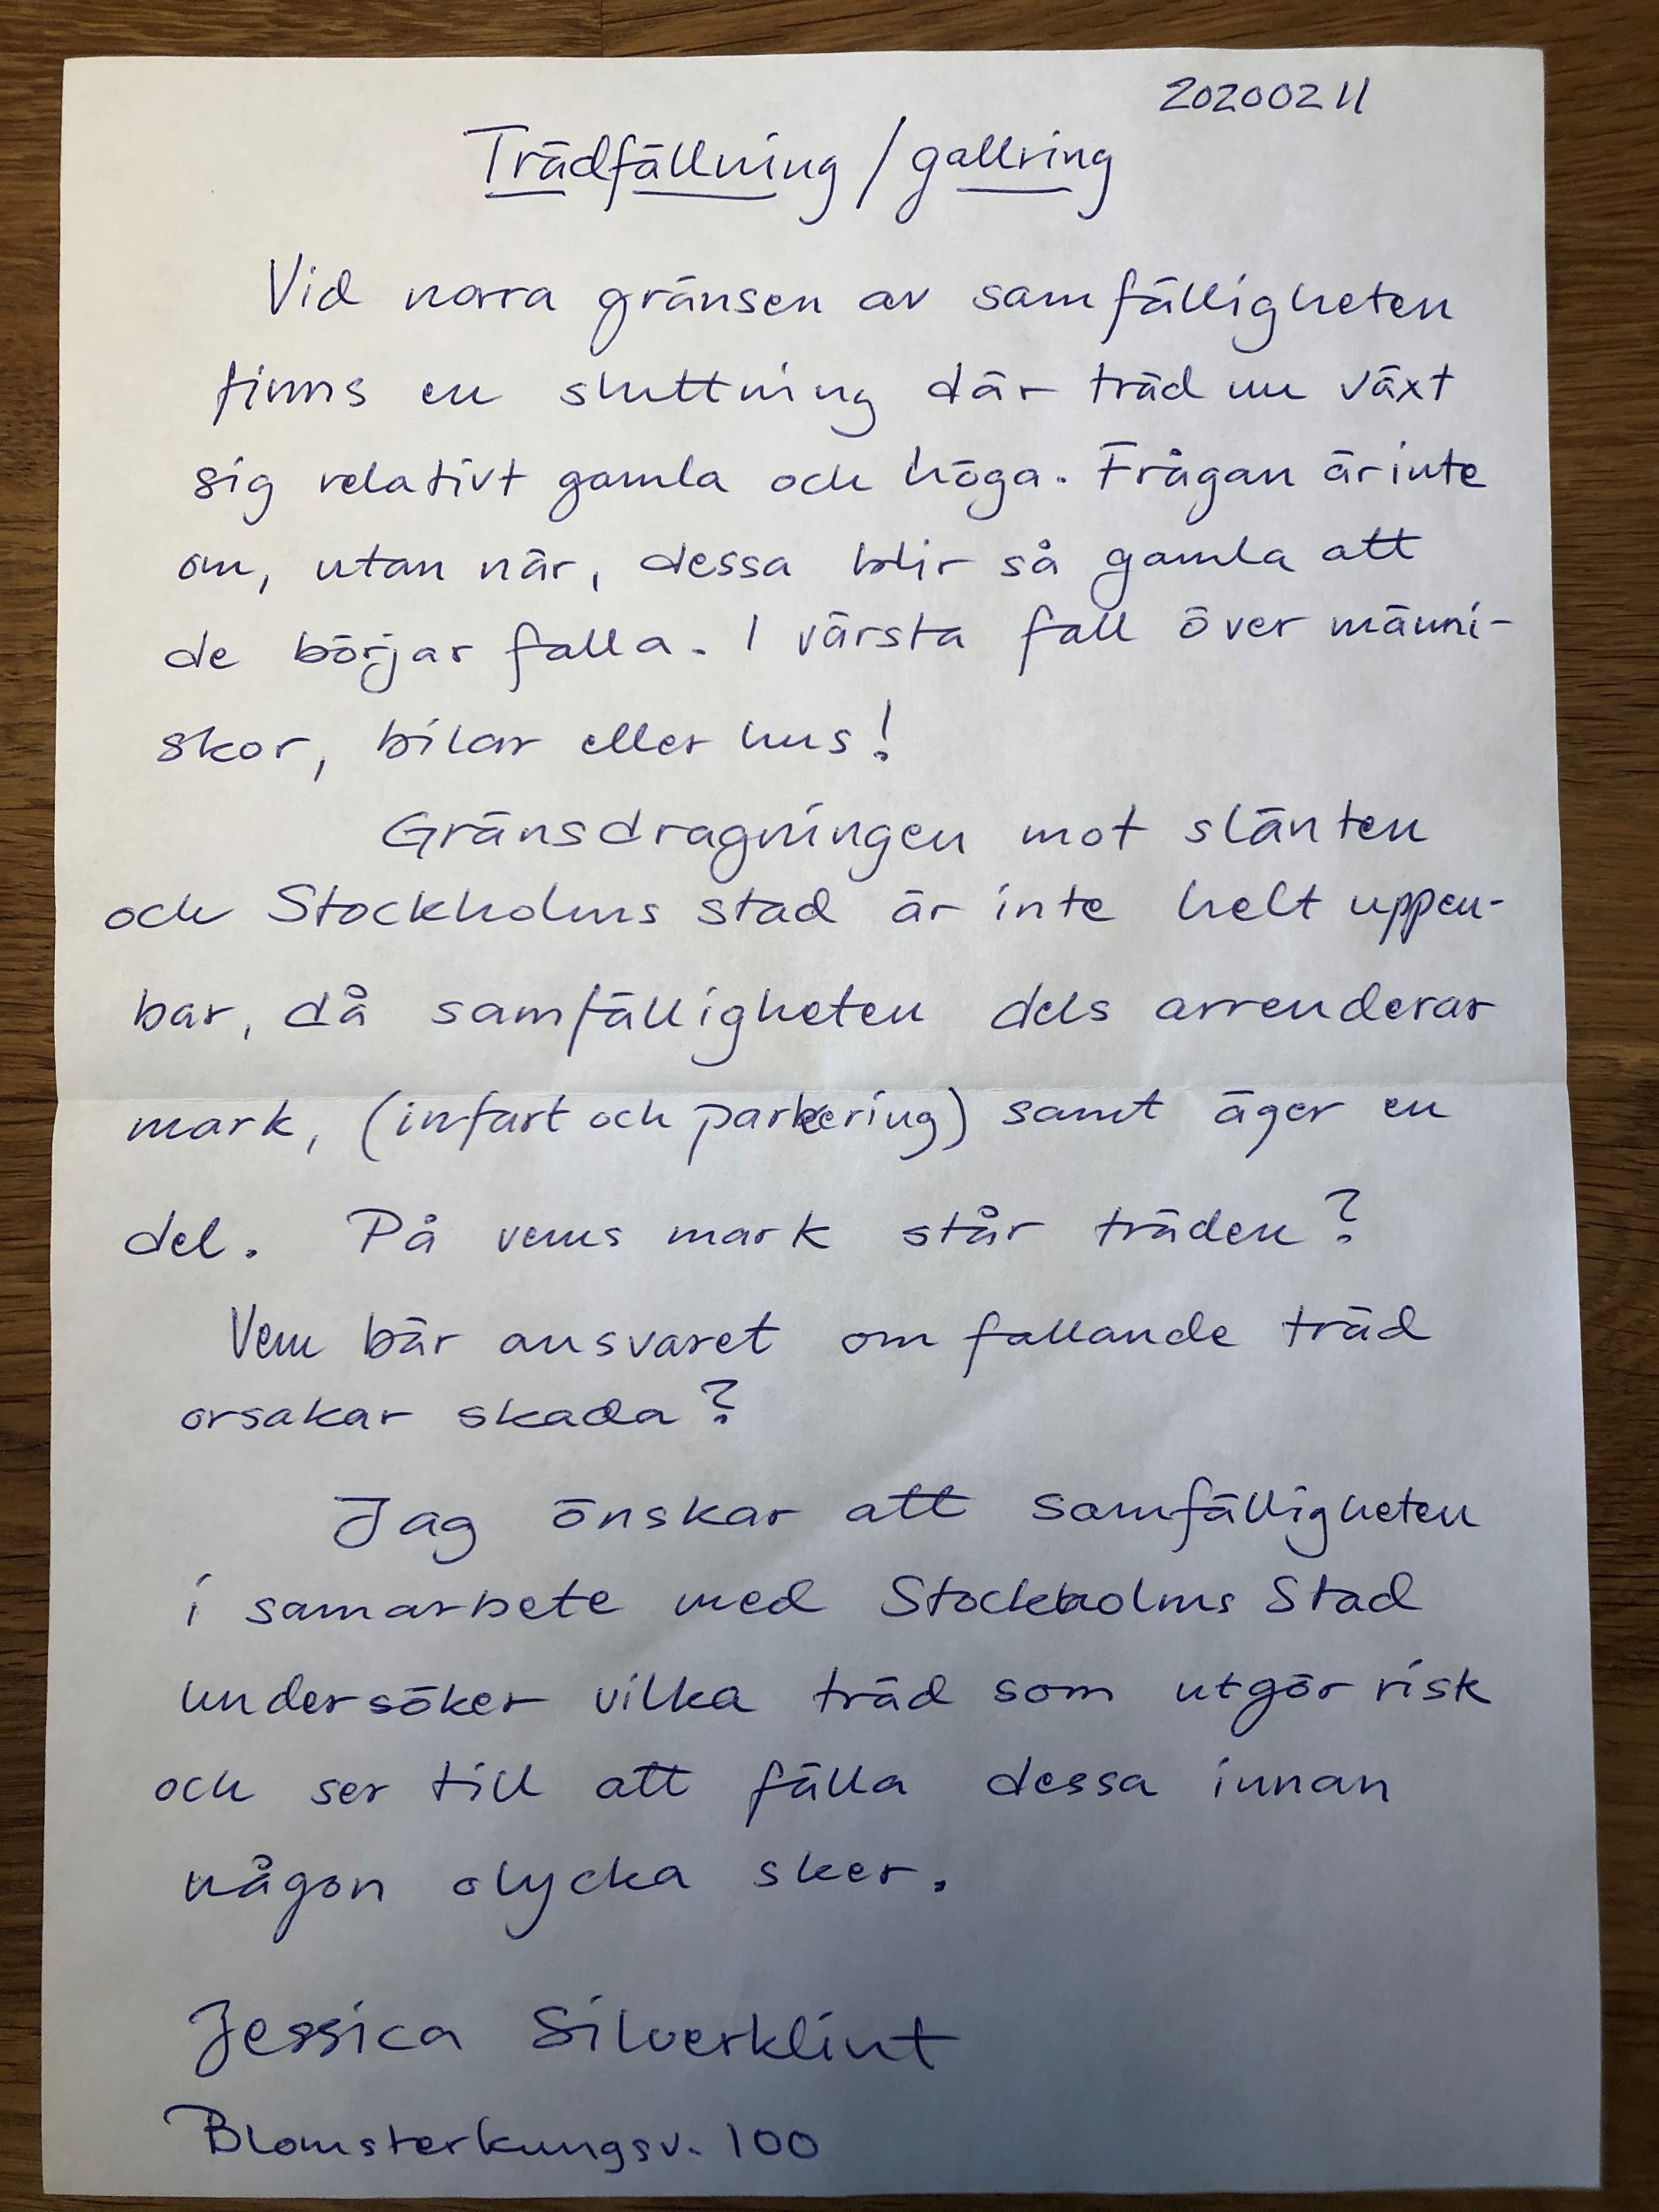 20200211
Trädfällning / gallring
Vid norra gränsen av samfälligheten
finns en sluttning där träd nu växt
sig relativt gamla och höga. Frågan är inte
om, utan när, dessa blir så gamla att
de börjar falla. I värsta fall över männi-
skor, bilar eller hus!
Gränsdragningen mot slänten
och Stockholms stad är inte helt uppen-
bar, då samfälligheten dels arrenderar
mark, (infart och parkering) samt äger en
del. På vems mark står träden?
Vem bär ansvaret om fallande träd
orsakar skada?
Jag önskar att samfälligheten
i samarbete med Stockholms Stad
undersöker vilka träd som utgör risk
och ser till att fälla dessa innan
någon olycka sker.
Jessica Silverklint
Blomsterkungsv. 100